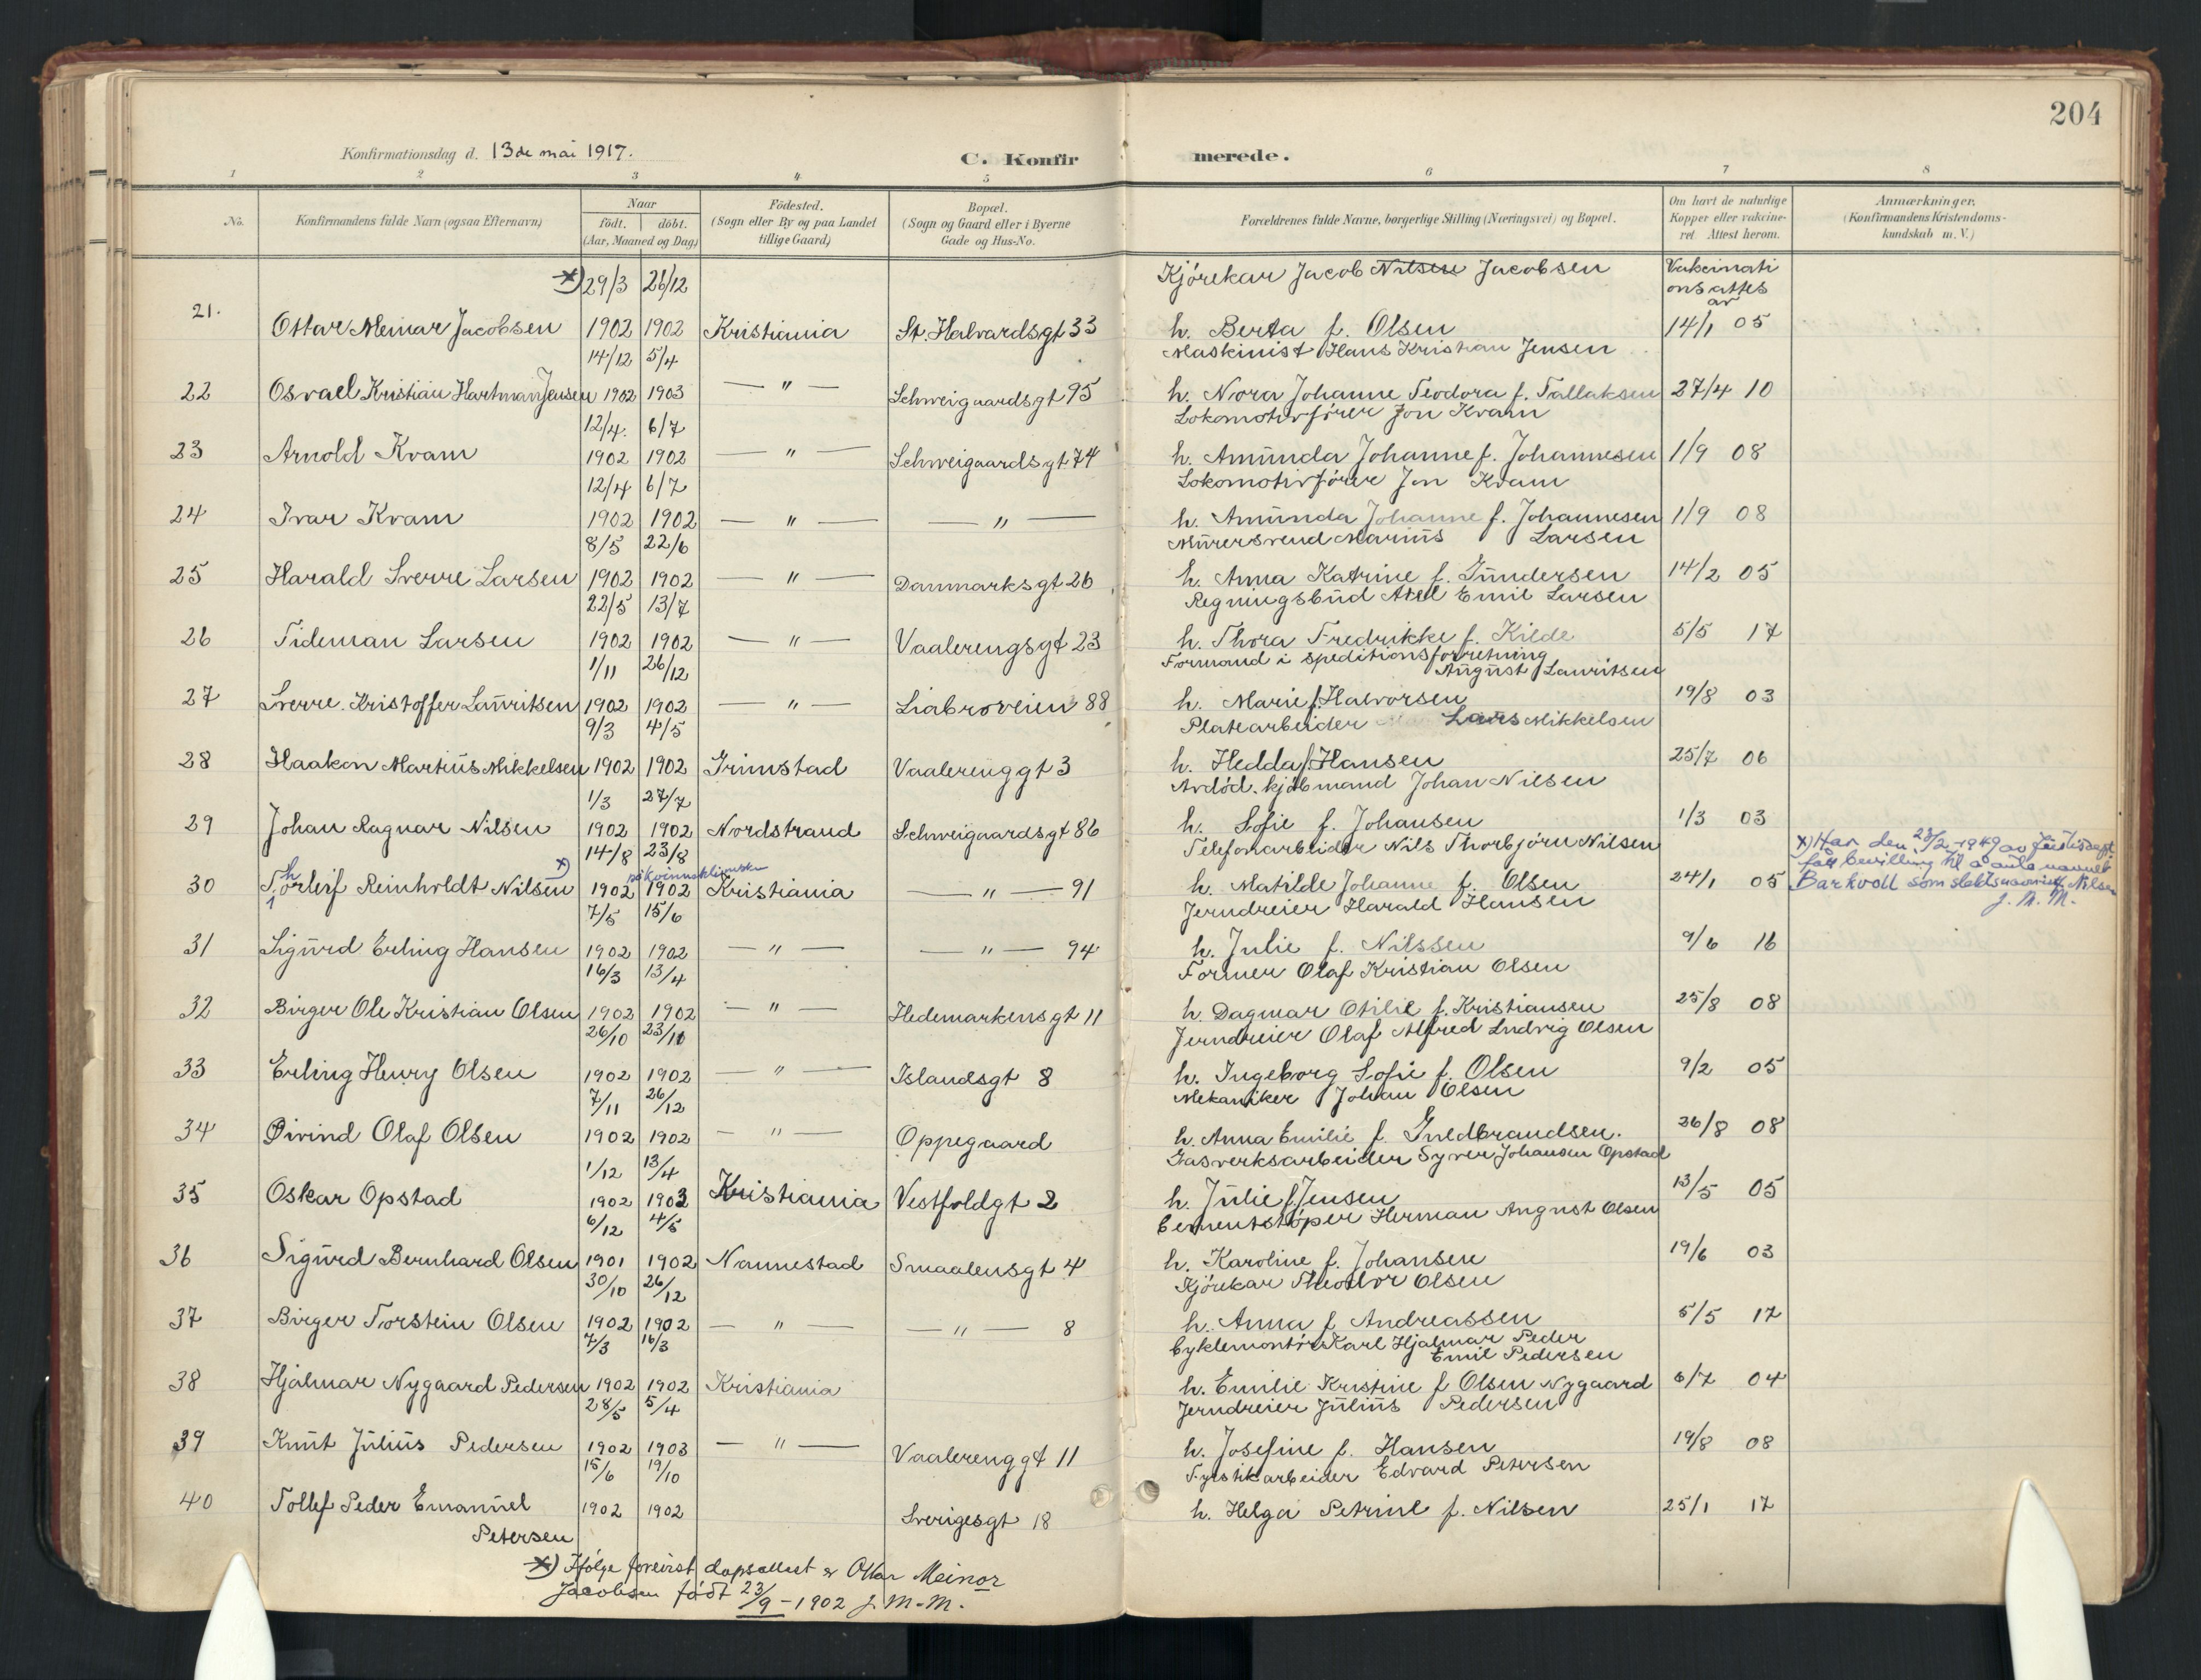 204
Konfirmationsdag d. 13de mai 1917.
C. Konfirmerede.
1 2 3 4 5 6 7 8
No.
Konfirmandens fulde Navn (ogsaa Efternavn)
Naar
født. døbt.
(Aar, Maaned og Dag)
Fødested.
(Sogn eller By og paa Landet
tillige Gaard)
Bopæl.
(Sogn og Gaard eller i Byerne
Gade og Hus-No.
Forældrenes fulde Navne, borgerlige Stilling (Næringsvei) og Bopæl.
Om havt de naturlige
Kopper eller vakcine-
ret Attest herom.
Anmærkninger.
(Konfirmandens Kristendoms-
kundskab m. V.)
x) 29/3 26/12 Kjørekar Jacob Nilsen Jacobsen Vakcinati
onsattes
av
21. Ottar Meinar Jacobsen 1902 1902 Kristiania St. Halvardsgt 33 h. Berta f. Olsen 14/1 05
14/12 5/4 Maskinist Hans Kristian Jensen
22 Osvael Kristian Hartman Jensen 1902 1903 — " — Schweigaardsgt 95 h. Nora Johanne Teodora f. Tallaksen 27/4 10
12/4. 6/7 Lokomotivfører Jon Kvam
23 Arnold Kvam 1902 1902 — " — Schweigaardsgt 74 h. Amunda Johanne f. Johannesen 1/9 08
12/4 6/7 Lokomotivfører Jon Kvam
24 Ivar Kvam 1902 1902 — " — — " — h. Amunda Johanne f. Johannesen 1/9 08
8/5 22/6 Murersvend Marius Larsen
25 Harald Sverre Larsen 1902 1902 — " — Danmarksgt 26 h. Anna Katrine f. Gundersen 14/2 05
22/5 13/7 Regningsbud Axel Emil Larsen
26 Tideman Larsen 1902 1902 — " — Vaalerengsgt 23 h. Thora Fredrikke f. Kilde 5/5 17
1/11 26/12 Formand i speditionsforretning
August Lauritsen
27 Sverre Kristoffer Lauritsen 1902 1902 — " — Liabroveien 88 h. Marie f. Halvorsen 19/8 03
9/3 4/5 Platearbeider Lars Mikkelsen
28 Haakon Martius Mikkelsen 1902 1902 Grimstad Vaalerenggt 3 h. Hedda f. Hansen 25/7 06
1/3 27/7 Avdød. kjøbmand Johan Nilsen
29 Johan Ragnar Nilsen 1902 1902 Nordstrand Schweigaardsgt 86 h. Sofie f. Johansen 1/3 03
14/8 23/8 Telefonarbeider Nils Thorbjørn Nilsen
på kvinneklinikken
30 Thorleif Reinholdt Nilsen x) 1902 1902 Kristiania — " — 91 h. Matilde Johanne f. Olsen 24/1 05
x) Har den 23/2 1949 av Justisdept
fått bevilling til å anta navnet
Barkvoll som slektsnavn Nilsen
J. M. M.
7/5 15/6 Jerndreier Harald Hansen
31 Sigurd Erling Hansen 1902 1902 — " — — " — 94 h. Julie f. Nilssen 9/6 16
16/3 13/4 Former Olaf Kristian Olsen
32 Birger Ole Kristian Olsen 1902 1902 — " — Hedemarkensgt 11 h. Dagmar Otilie f. Kristiansen 25/8 08
26/10 23/11 Jerndreier Olaf Alfred Ludvig Olsen
33 Erling Henry Olsen 1902 1902 — " — Islandsgt 8 h. Ingeborg Sofie f. Olsen 9/2 05
7/11 26/12 Mekaniker Johan Olsen
34 Øivind Olaf Olsen 1902 1902 — " — Oppegaard h. Anna Emilie f. Guldbrandsen. 26/8 08
1/12 13/4 Gasverksarbeider Syver Johansen Opstad
35 Oskar Opstad 1902 1903 Kristiania Vestfoldgt 2 h. Julie f. Jensen 13/5 05
6/12 4/5 Cementstøper Herman August Olsen
36 Sigurd Bernhard Olsen 1901 1902 Nannestad Smaalensgt 4 h. Karoline f. Johansen 19/6 03
30/10 26/12 Kjørekar Theodor Olsen
37 Birger Torstein Olsen 1902 1902 — " — — " — 8 h. Anna f. Andreassen 5/5 17
7/3 16/3 Cyklemontør Karl Hjalmar Peder
Emil Pedersen
38 Hjalmar Nygaard Pedersen 1902 1902 Kristiania h. Emilie Kristine f Olsen Nygaard 6/7 04
28/5 5/4 Jerndreier Julius Pedersen
39 Knut Julius Pedersen 1902 1903 — " — Vaalerenggt 11 h. Josefine f. Hansen 19/8 08
15/6 19/10 Fyrstikarbeider Edvard Petersen
40 Tollef Peder Emanuel 1902 1902 Sverigesgt 18 h. Helga Petrine f. Nilsen 25/1 17
Petersen
x) Ifølge forevist dåpsattest er Ottar Meinor
Jacobsen født 23/9 - 1902 J. M. M.